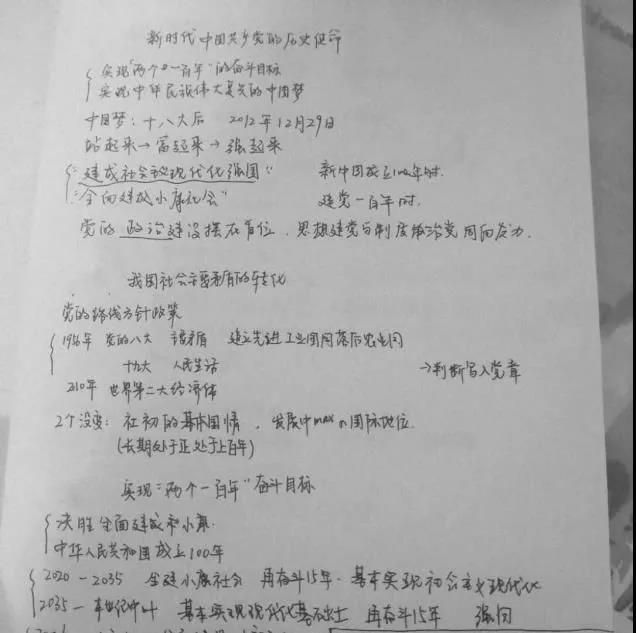 新时代中国共产党的历史使命
实现"两个一百年"的奋斗目标
实现中华民族伟大复兴的中国梦
中国梦：十八大后 2012年12月29日
站起来→富起来→强起来
"建成社会主义现代化强国" 新中国成立100年时.
"全面建成小康社会" 建党一百年时.
党的政治建设摆在首位，思想建党与制度治党同向发力.
我国社会主要矛盾的转化
党的路线方针政策
1956年 党的八大 主要矛盾 建立先进工业国同落后农业国
十九大 人民生活 →判断写入党章
2010年 世界第二大经济体
2个没变：社初的基本国情，发展中max的国际地位.
(长期处于正处于上百年)
实现"两个一百年"奋斗目标
决胜全面建成小康.
中华人民共和国成立100年
2020-2035 全建小康社会 再奋斗15年. 基本实现社会主义现代化
2035-本世纪中叶 基本实现现代化基础上 再奋斗15年 强国